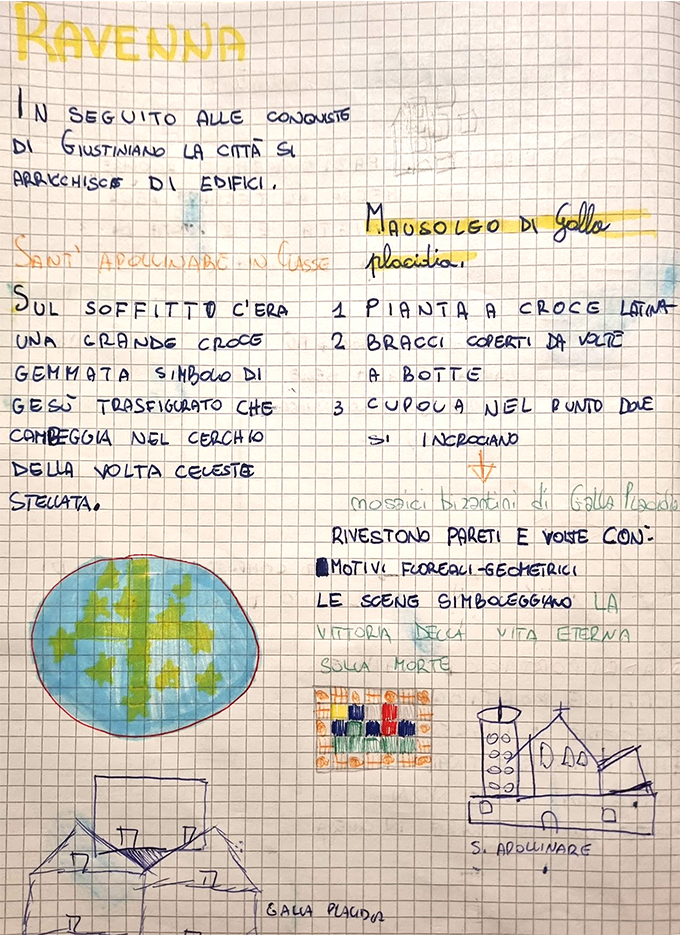 RAVENNA
IN SEGUITO ALLE CONQUISTE
DI GIUSTINIANO LA CITTÀ SI
ARRICCHISCE DI EDIFICI.
SANT' APOLLINARE IN CLASSE
SUL SOFFITTO C'ERA
UNA GRANDE CROCE
GEMMATA SIMBOLO DI
GESÙ TRASFIGURATO CHE
CAMPEGGIA NEL CERCHIO
DELLA VOLTA CELESTE
STELLATA.
MAUSOLEO DI Galla
placidia.
1 PIANTA A CROCE LATINA
2 BRACCI COPERTI DA VOLTE
A BOTTE
3 CUPOLA NEL PUNTO DOVE
SI INCROCIANO
mosaici bizantini di GALLA PLACIDIA
RIVESTONO PARETI E VOLTE CON:
MOTIVI FLOREALI-GEOMETRICI
LE SCENE SIMBOLEGGIANO LA
VITTORIA DELLA VITA ETERNA
SULLA MORTE
S. APOLLINARE
GALLA PLACIDIA